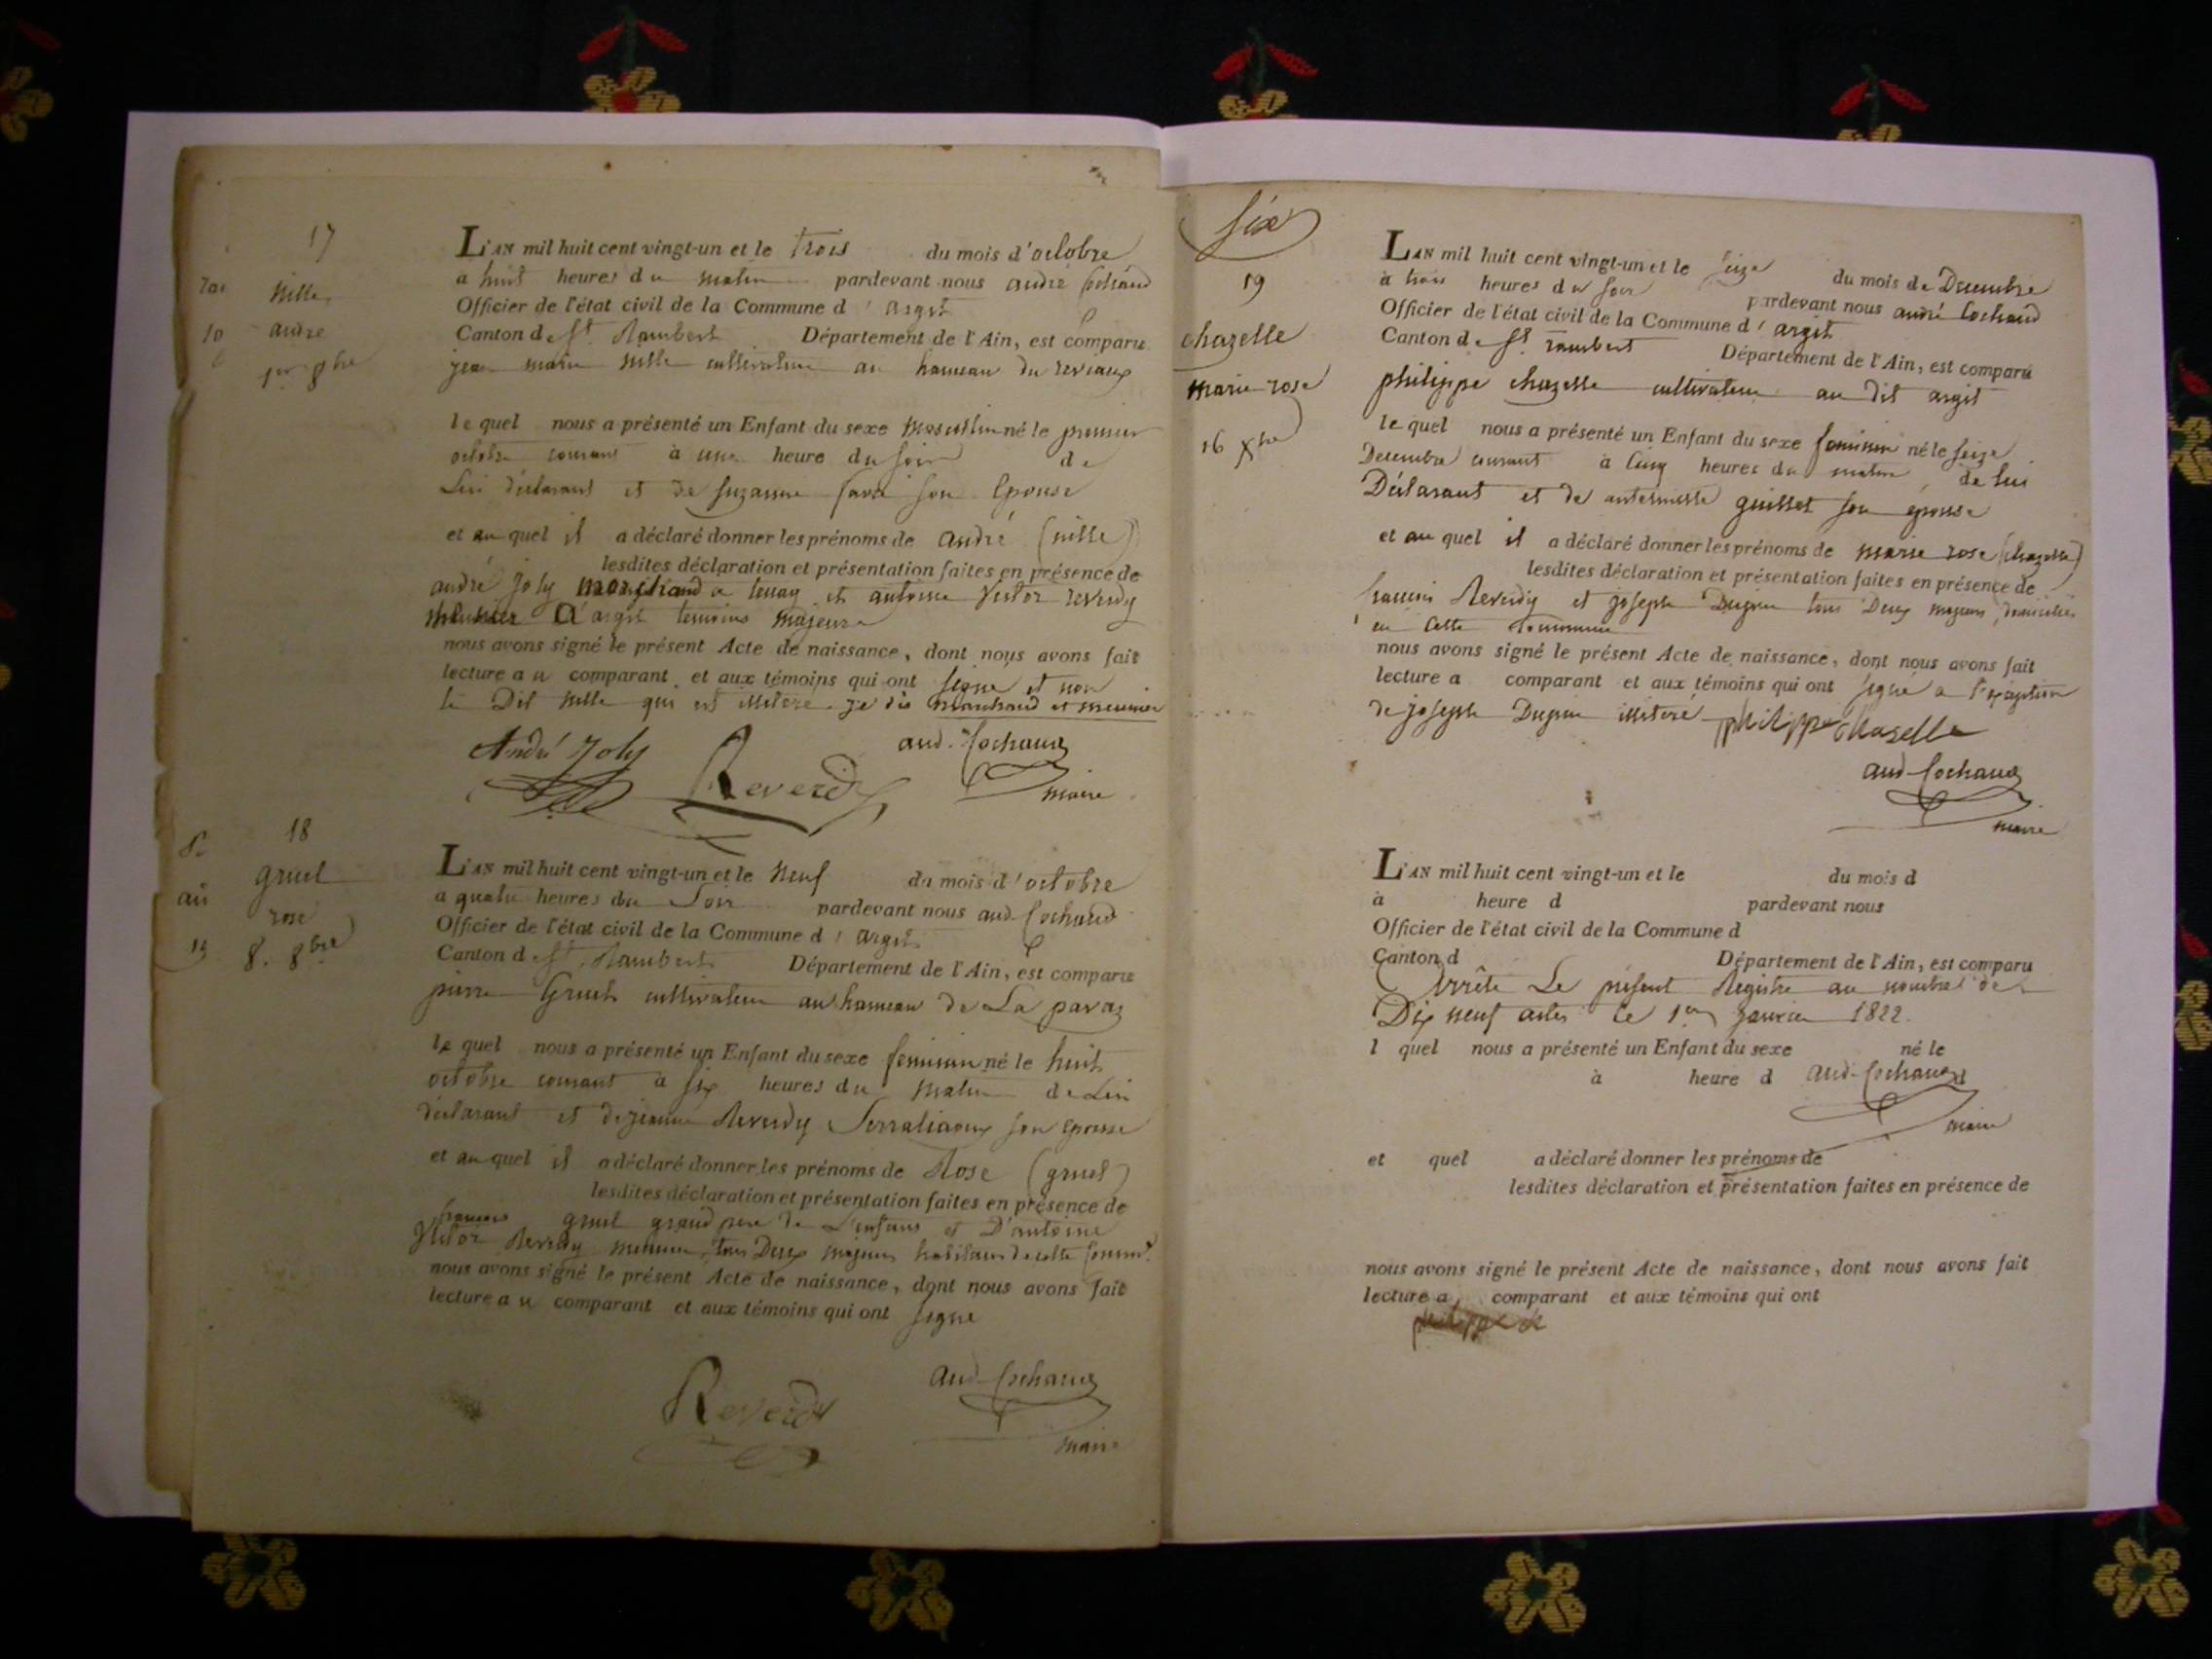 17
nille
andre
1er 8bre
L'AN mil huit cent vingt-un et le trois du mois d'octobre
a huit heures du matin pardevant nous andré Cochaud
Officier de l'état civil de la Commune d'argit
Canton de St. Rambert Département de l'Ain, est comparu
jean marie nille cultivateur au hameau du reveaux
le quel nous a présenté un Enfant du sexe masculin né le premier
octobre courant à une heure du soir de
Lui déclarant et de suzanne son Epouse
et au quel il a déclaré donner les prénoms de andré (nille)
lesdites déclaration et présentation faites en présence de
andré joly marchand a tenay et antoine victor reverdy
meunier a argit temoins majeurs
nous avons signé le présent Acte de naissance, dont nous avons fait
lecture au comparant et aux témoins qui ont signe et non
le Dit nille qui est illitéré. je dis marchand et meunier
André Joly
Reverdy
and. Cochaud
maire
18
gruel
rose
8. 8bre
L'AN mil huit cent vingt-un et le neuf du mois d'octobre
a quatre heures du Soir pardevant nous and. Cochaud
Officier de l'état civil de la Commune d'argit
Canton de St. Rambert Département de l'Ain, est comparu
pierre Gruel cultivateur au hameau de La
le quel nous a présenté un Enfant du sexe feminin né le huit
octobre courant à six heures du matin de Lui
déclarant et de jeanne Reverdy son epouse
et au quel il a déclaré donner les prénoms de Rose (gruel)
lesdites déclaration et présentation faites en présence de
francois gruel grand pere de L'enfant et D'antoine
Victor Reverdy meunier, tous Deux majeurs habitans de cette Commne
nous avons signé le présent Acte de naissance, dont nous avons fait
lecture au comparant et aux témoins qui ont signe
Reverdy
And. Cochaud
maire
six
19
chazelle
marie rose
16 Xbre
L'AN mil huit cent vingt-un et le seize du mois de Decembre
à trois heures du soir pardevant nous andré Cochaud
Officier de l'état civil de la Commune d'argit
Canton de St rambert Département de l'Ain, est comparu
philippe chazelle cultivateur au dit argit
le quel nous a présenté un Enfant du sexe feminin né le seize
Decembre courant à cinq heures du matin de lui
Déclarant et de guillet son épouse
et au quel il a déclaré donner les prénoms de marie rose (chazelle)
lesdites déclaration et présentation faites en présence de
francois Reverdy et joseph Dupin tous Deux majeurs, domiciliés
en cette commune
nous avons signé le présent Acte de naissance, dont nous avons fait
lecture a comparant et aux témoins qui ont signé a l'exception
de joseph Dupin illiteré philippe chazelle
and. Cochaud
maire
L'AN mil huit cent vingt-un et le du mois d
à heure d pardevant nous
Officier de l'état civil de la Commune d
Canton d Département de l'Ain, est comparu
Arrêté Le présent Registre au nombre de
Dix neuf actes le 1er janvier 1822.
l quel nous a présenté un Enfant du sexe né le
à heure d and. Cochaud d
maire
et quel a déclaré donner les prénoms de
lesdites déclaration et présentation faites en présence de
nous avons signé le présent Acte de naissance, dont nous avons fait
lecture a comparant et aux témoins qui ont